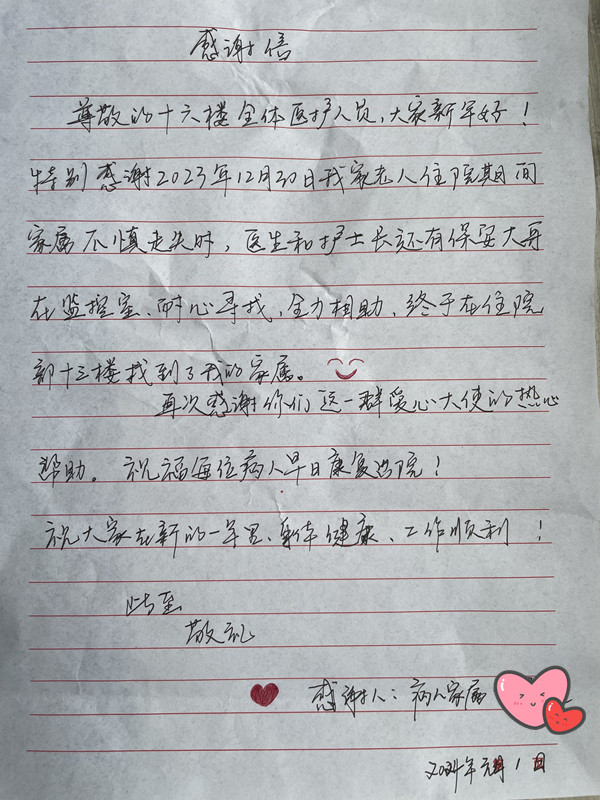 感谢信
尊敬的十六楼全体医护人员,大家新年好!
特别感谢2023年12月30日我家老人住院期间
家属不慎走失时,医生和护士长还有保安大哥
在监控室、耐心寻找,全力相助、终于在住院
部十三楼找到了我的家属。
再次感谢你们这一群爱心大使的热心
帮助。祝福每位病人早日康复出院!
祝大家在新的一年里、身体健康、工作顺利!
此至
敬礼
感谢人:病人家属
2024年元月1日